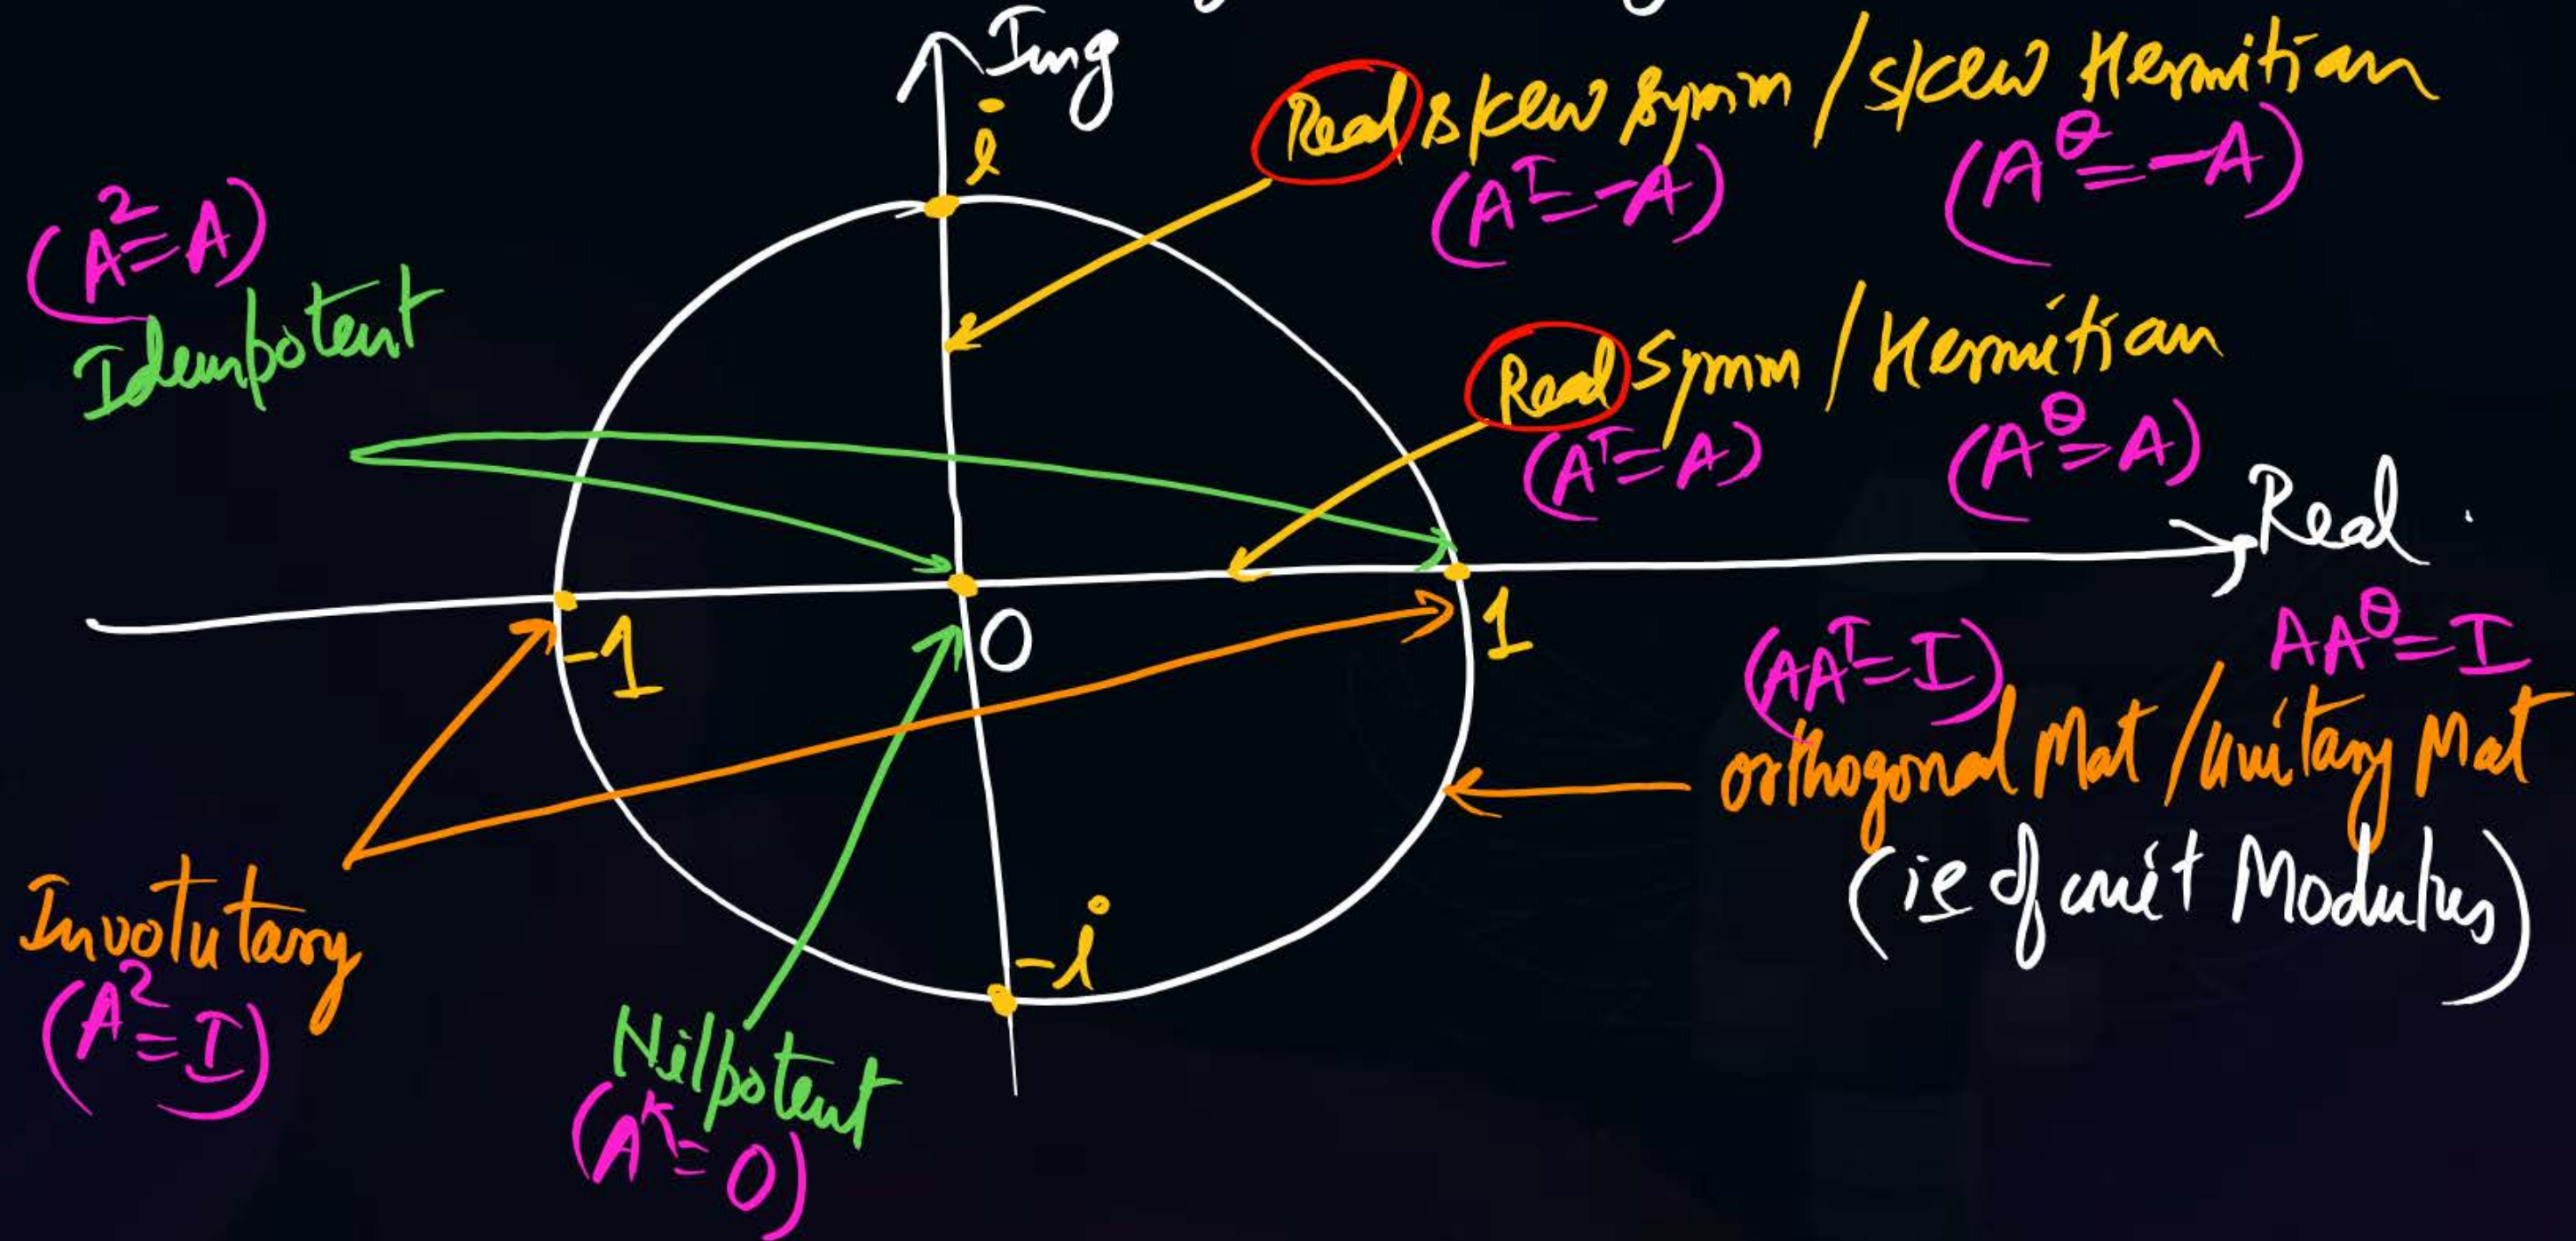 Img
i
Real skew symm / skew Hermitian
(Aᵀ=-A) (A^θ=-A)
(A²=A)
Idempotent
Real Symm / Hermitian
(Aᵀ=A) (A^θ=A)
Real
-1
0
1
(AAᵀ=I) AA^θ=I
orthogonal Mat / unitary Mat
(ie of unit Modulus)
Involutary
(A²=I)
-i
Nilpotent
(A^K=0)